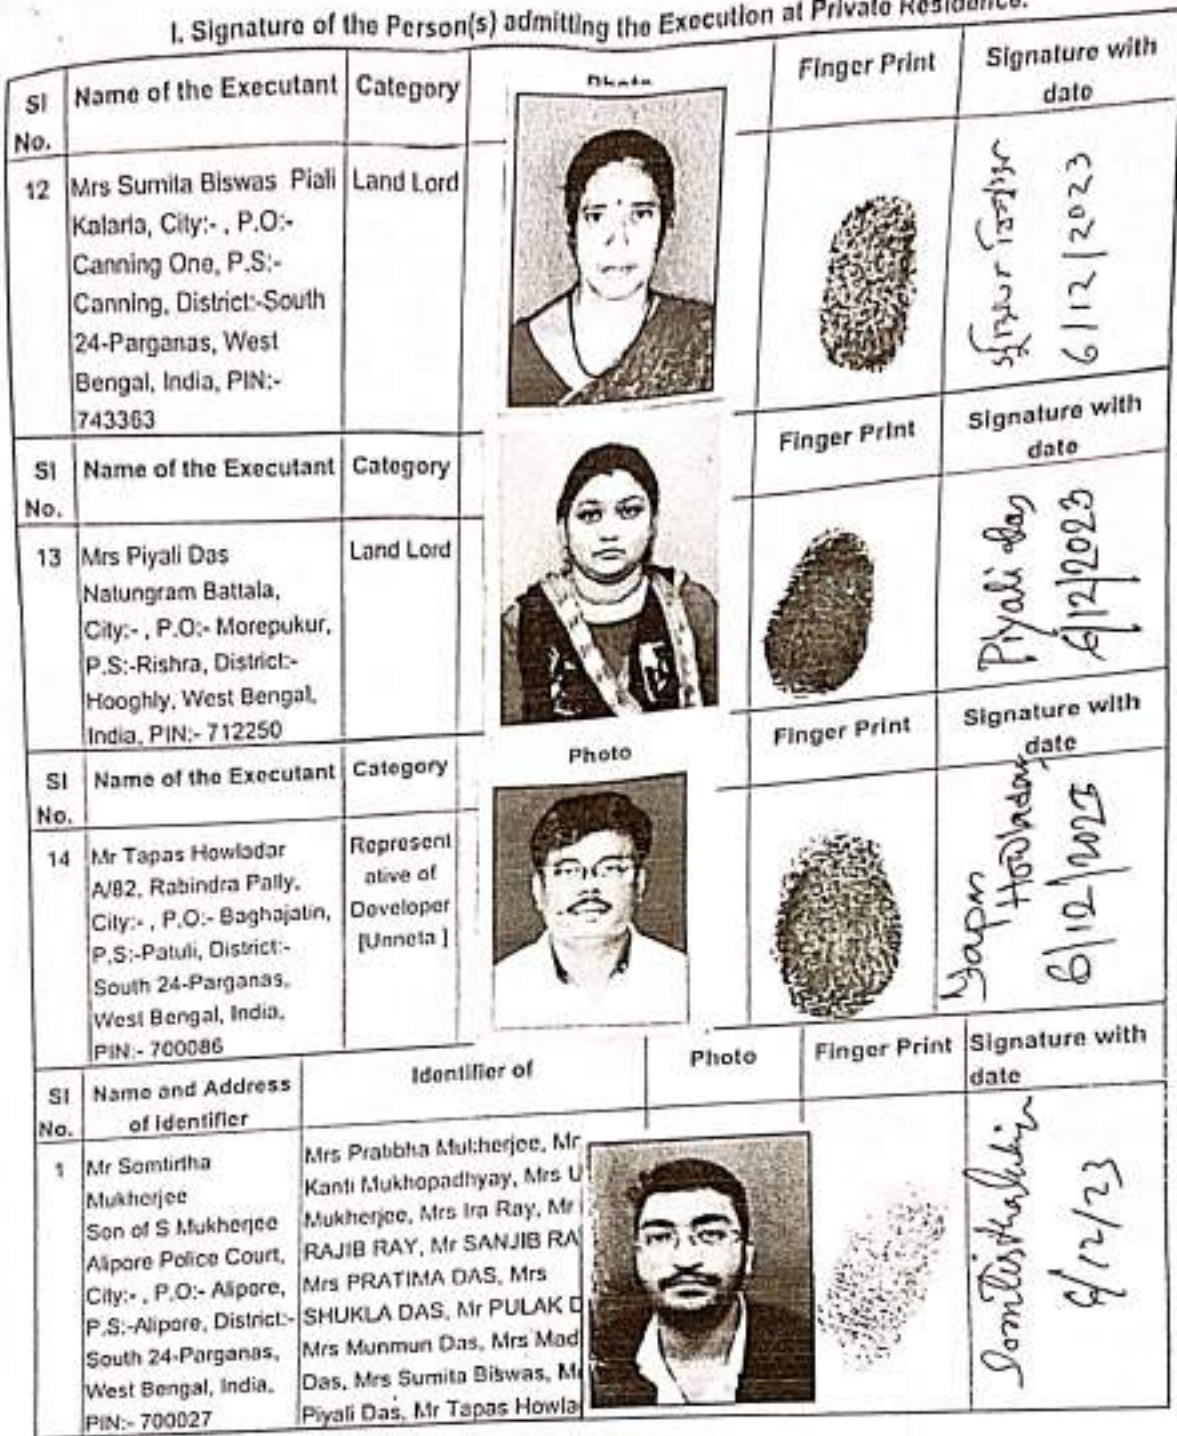 I. Signature of the Person(s) admitting the Execution at Private Residence.
Sl No. Name of the Executant Category Photo Finger Print Signature with date
12 Mrs Sumita Biswas Piali Land Lord
Kalaria, City:- , P.O:-
Canning One, P.S:-
Canning, District:-South
24-Parganas, West
Bengal, India, PIN:-
743363
6/12/2023
Sl No. Name of the Executant Category Finger Print Signature with date
13 Mrs Piyali Das Land Lord
Natungram Battala,
City:- , P.O:- Morepukur,
P.S:-Rishra, District:-
Hooghly, West Bengal,
India, PIN:- 712250
Piyali das
6/12/2023
Sl No. Name of the Executant Category Photo Finger Print Signature with date
14 Mr Tapas Howladar Represent
A/82, Rabindra Pally, ative of
City:- , P.O:- Baghajatin, Developer
P.S:-Patuli, District:- [Unneta ]
South 24-Parganas,
West Bengal, India,
PIN:- 700086
Tapas
Howladar
6/12/2023
Sl No. Name and Address of Identifier Identifier of Photo Finger Print Signature with date
1 Mr Somtirtha
Mukherjee
Son of S Mukherjee
Alipore Police Court,
City:- , P.O:- Alipore,
P.S:-Alipore, District:-
South 24-Parganas,
West Bengal, India,
PIN:- 700027
Mrs Pratibha Mukherjee, Mr
Kanti Mukhopadhyay, Mrs U
Mukherjee, Mrs Ira Ray, Mr
RAJIB RAY, Mr SANJIB RA
Mrs PRATIMA DAS, Mrs
SHUKLA DAS, Mr PULAK D
Mrs Munmun Das, Mrs Mad
Das, Mrs Sumita Biswas, M
Piyali Das, Mr Tapas Howla
6/12/23